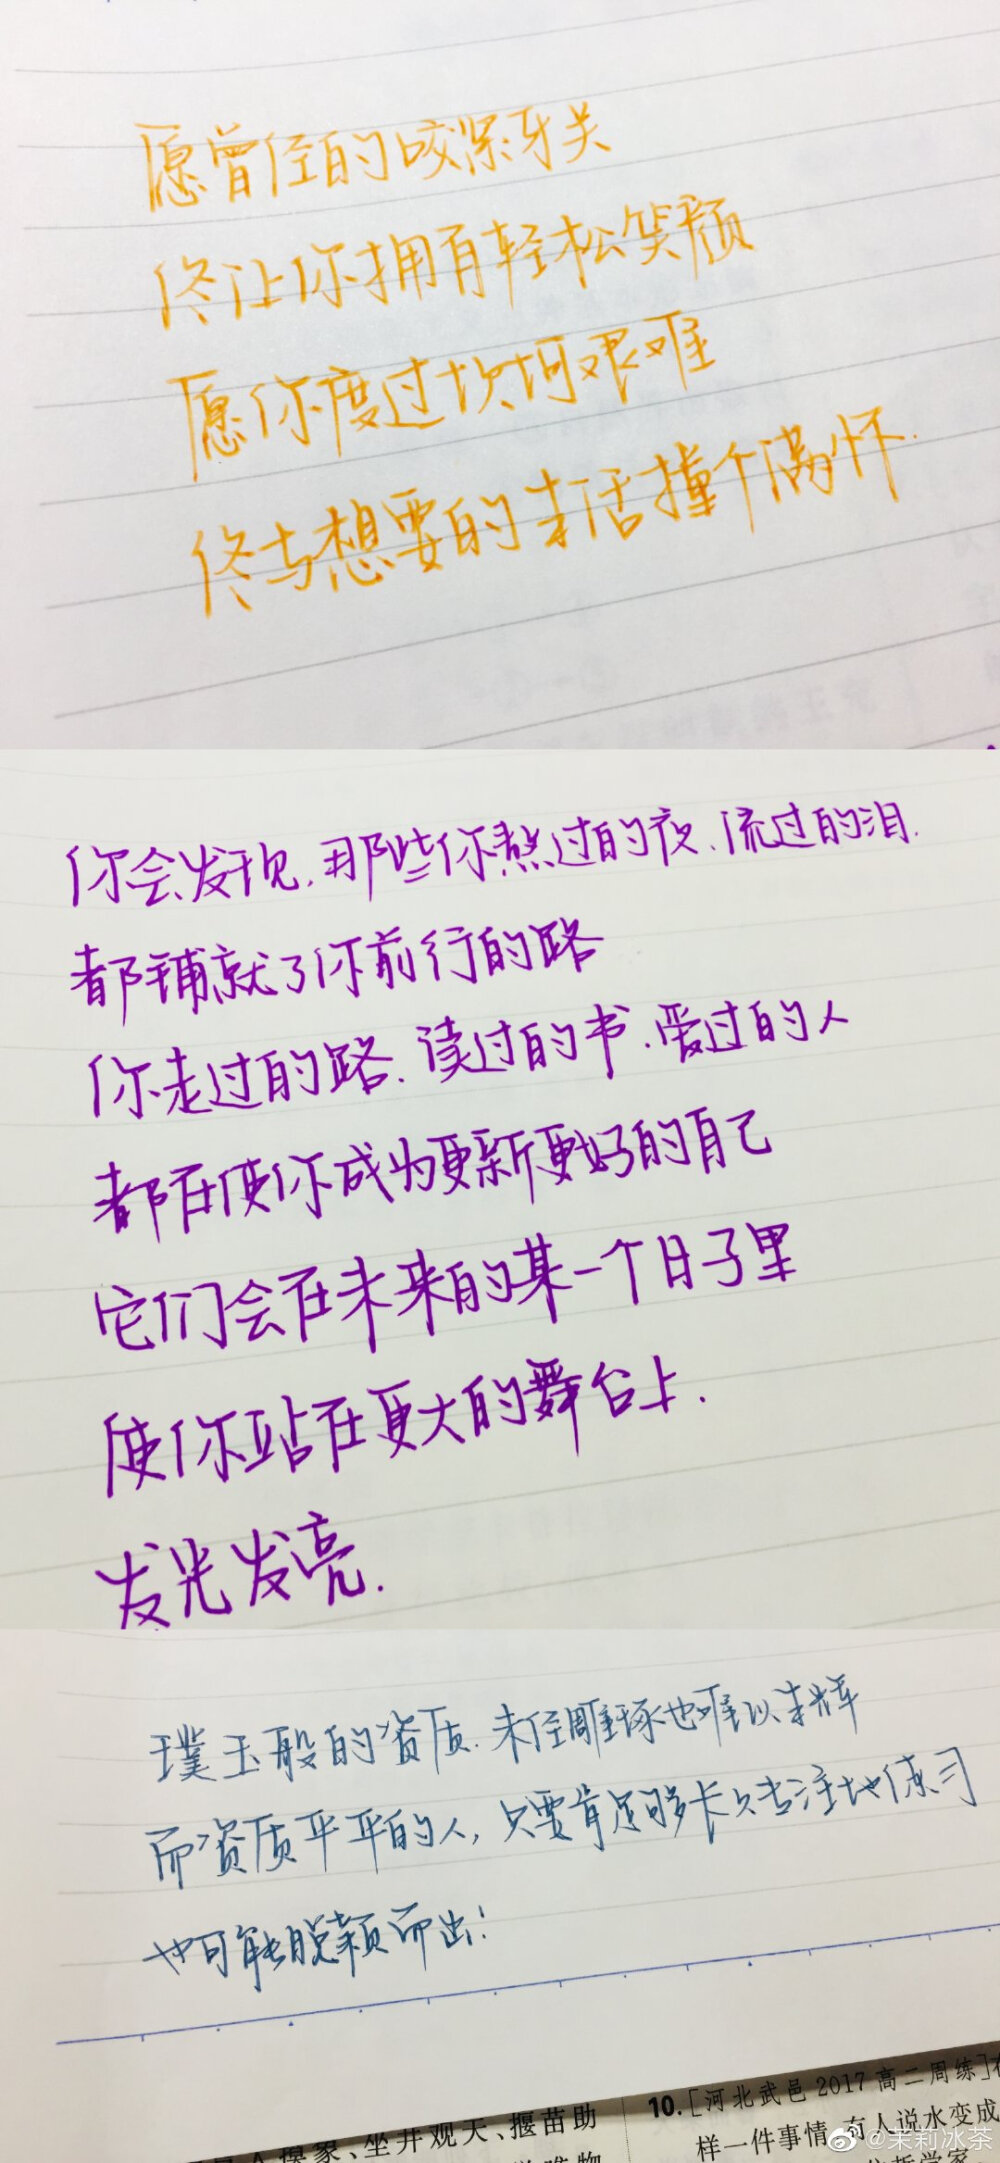 愿曾经的咬紧牙关
终让你拥有轻松笑颜
愿你度过坎坷艰难
终与想要的生活撞个满怀.
你会发现.那些你熬过的夜.流过的泪.
都铺就了你前行的路
你走过的路.读过的书.爱过的人
都在使你成为更新更好的自己
它们会在未来的某一个日子里
使你站在更大的舞台上.
发光发亮.
璞玉般的资质.未经雕琢也难以生辉
而资质平平的人,只要肯足够长久专注地练习
也可能脱颖而出!
人摸象、坐井观天、揠苗助
10.[河北武邑2017高二周练]在
样一件事情,有人说水变成
@茉莉冰茶